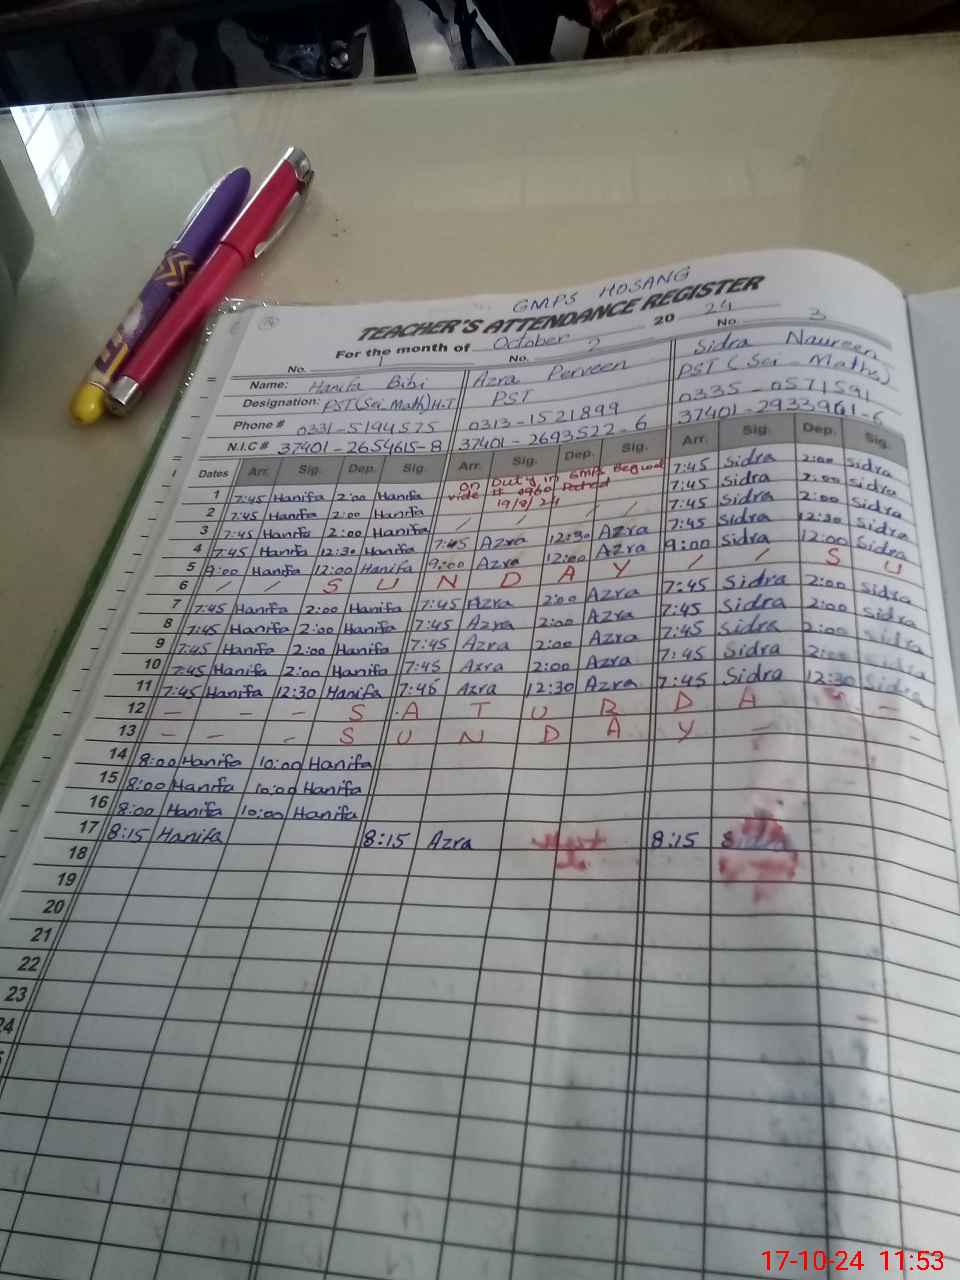 GMPS HOSANG
TEACHER'S ATTENDANCE REGISTER
For the month of October 20 24
No. 1 No. 2 No. 3
Name: Hanifa Bibi Azra Perveen Sidra Naureen
Designation: PST(Sci Math)H.T PST PST (Sci Maths)
Phone # 0331-5194575 0313-1521899 0335-0571591
N.I.C # 37401-2654615-8 37401-2693522-6 37401-2933961-6
Dates Arr. Sig. Dep. Sig. Arr. Sig. Dep. Sig. Arr. Sig. Dep. Sig.
1 7:45 Hanifa 2:00 Hanifa On Duty in GMPS 7:45 Sidra 2:00 Sidra
2 7:45 Hanifa 2:00 Hanifa vide # 0960 Dated 19/8/24 7:45 Sidra 2:00 Sidra
3 7:45 Hanifa 2:00 Hanifa / / / / 7:45 Sidra 2:00 Sidra
4 7:45 Hanifa 12:30 Hanifa 7:45 Azra 12:30 Azra 7:45 Sidra 12:30 Sidra
5 9:00 Hanifa 12:00 Hanifa 9:00 Azra 12:00 Azra 9:00 Sidra 12:00 Sidra
6 / / S U N D A Y / / S U
7 7:45 Hanifa 2:00 Hanifa 7:45 Azra 2:00 Azra 7:45 Sidra 2:00 Sidra
8 7:45 Hanifa 2:00 Hanifa 7:45 Azra 2:00 Azra 7:45 Sidra 2:00 Sidra
9 7:45 Hanifa 2:00 Hanifa 7:45 Azra 2:00 Azra 7:45 Sidra 2:00 Sidra
10 7:45 Hanifa 2:00 Hanifa 7:45 Azra 2:00 Azra 7:45 Sidra 2:00 Sidra
11 7:45 Hanifa 12:30 Hanifa 7:45 Azra 12:30 Azra 7:45 Sidra 12:30 Sidra
12 - - - S A T U R D A -
13 - - - S U N D A Y - -
14 8:00 Hanifa 10:00 Hanifa
15 8:00 Hanifa 10:00 Hanifa
16 8:00 Hanifa 10:00 Hanifa
17 8:15 Hanifa 8:15 Azra 8:15 Sidra
18
19
20
21
22
23
24
17-10-24 11:53